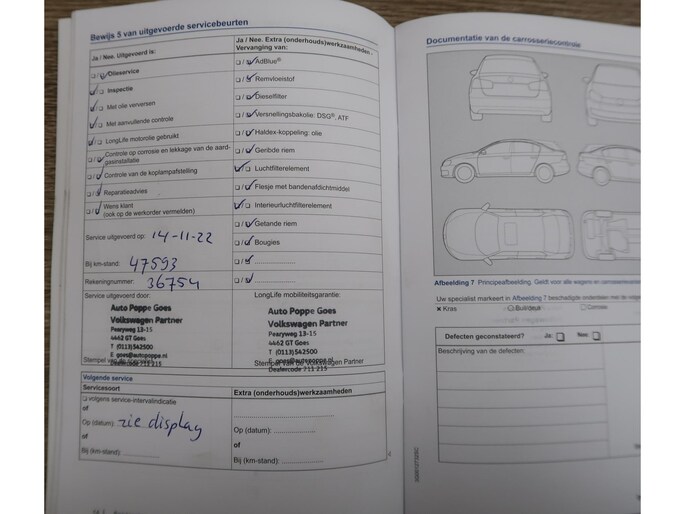 Bewijs 5 van uitgevoerde servicebeurten
Ja / Nee. Uitgevoerd is:
Olieservice
Inspectie
Met olie verversen
Met aanvullende controle
LongLife motorolie gebruikt
Controle op corrosie en lekkage van de aard-
gasinstallatie
Controle van de koplampafstelling
Reparatieadvies
Wens klant
(ook op de werkorder vermelden)
Service uitgevoerd op: 14-11-22
Bij km-stand: 47593
Rekeningnummer: 36754
Service uitgevoerd door:
Auto Poppe Goes
Volkswagen Partner
Pearyweg 13-15
4462 GT Goes
T (0113)542500
E goes@autopoppe.nl
Dealercode 211 215
Ja / Nee. Extra (onderhouds)werkzaamheden -
Vervanging van:
AdBlue®
Remvloeistof
Dieselfilter
Versnellingsbakolie: DSG®, ATF
Haldex-koppeling: olie
Geribde riem
Luchtfilterelement
Flesje met bandenafdichtmiddel
Interieurluchtfilterelement
Getande riem
Bougies
LongLife mobiliteitsgarantie:
Auto Poppe Goes
Volkswagen Partner
Pearyweg 13-15
4462 GT Goes
T (0113)542500
E goes@autopoppe.nl
Stempel van de Volkswagen Partner
Dealercode 211 215
Volgende service
Servicesoort
volgens service-intervalindicatie
of
Op (datum): zie display
of
Bij (km-stand):
Extra (onderhouds)werkzaamheden
Op (datum):
of
Bij (km-stand):
Documentatie van de carrosseriecontrole
Afbeelding 7 Principeafbeelding. Geldt voor alle wagen en carrosserie
Uw specialist markeert in Afbeelding 7 beschadigde onderdelen met de
× Kras
Corrosie
Defecten geconstateerd? Ja: Nee:
Beschrijving van de defecten: